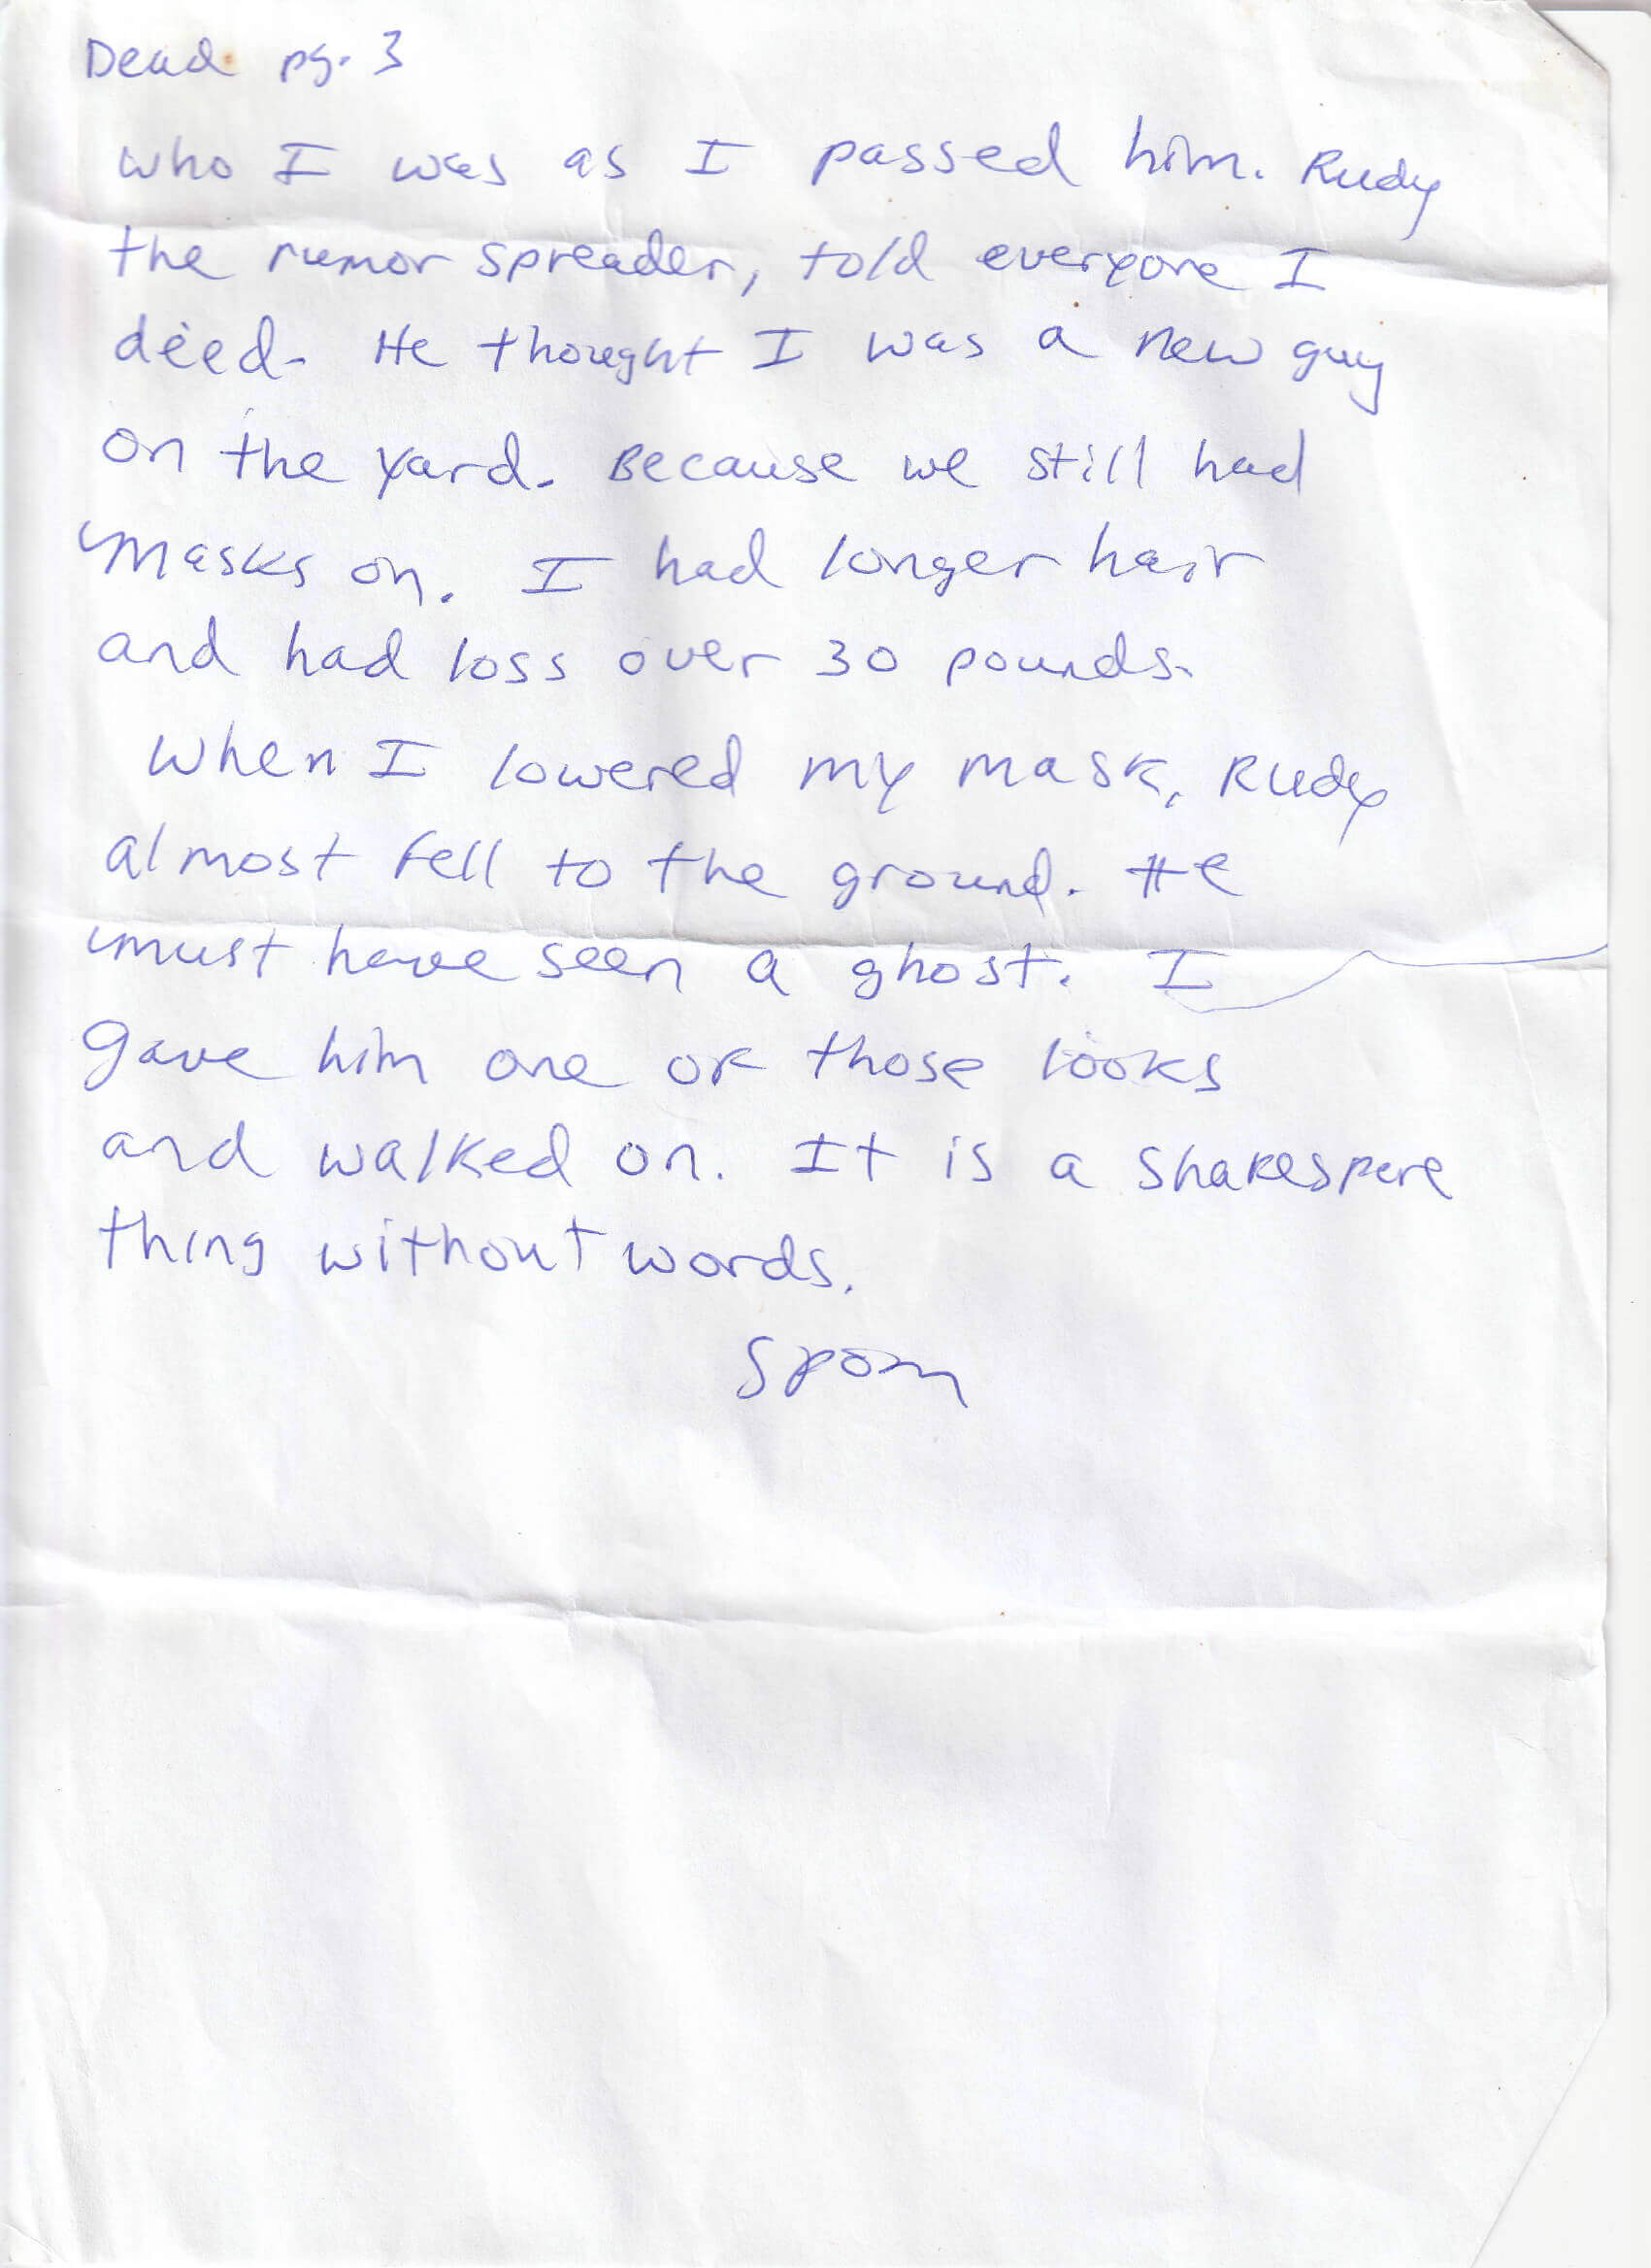 Dead pg. 3
who I was as I passed him. Rudy
the rumor spreader, told everyone I
died. He thought I was a new guy
on the yard. Because we still had
masks on. I had longer hair
and had loss over 30 pounds.
When I lowered my mask, Rudy
almost fell to the ground. He
must have seen a ghost. I
gave him one of those looks
and walked on. It is a Shakespere
thing without words.